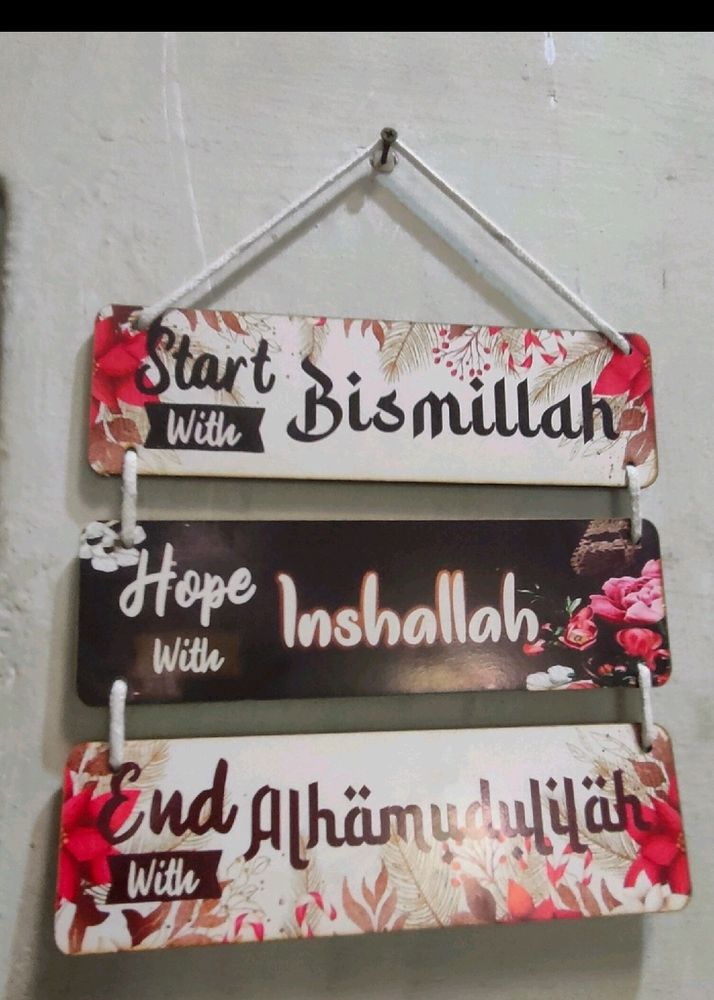 Start
With Bismillah
Hope
With Inshallah
End
With Alhämuduliläh